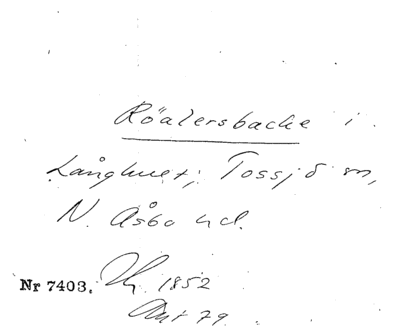 Röalersbacke i
Långhult; Tossjö sn,
N. Åsbo hd.
Nr 7403. 1852
79